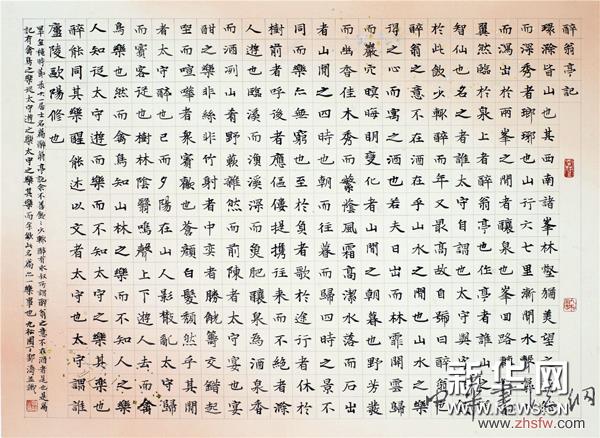 醉翁亭記
環滁皆山也其西南諸峯林壑猶美望之
而深秀者瑯琊也山行六七里漸聞水聲
而瀉出於兩峯之間者釀泉也峯回路轉
翼然臨於泉上者醉翁亭也作亭者誰山
智仙也名之者誰太守自謂也太守與
於此飲少輒醉而年又最高故自號曰醉翁也
醉翁之意不在酒在乎山水之間也山水之樂
得之心而寓之酒也若夫日出而林霏開雲歸
而巖穴暝晦明變化者山間之朝暮也野芳發
而幽香佳木秀而繁陰風霜高潔水落而石出
者山間之四時也朝而往暮而歸四時之景不
同而樂亦無窮也至於負者歌於途行者休於
樹前者呼後者應傴僂提攜往來而不絕者滁
人遊也臨溪而漁溪深而魚肥釀泉為酒泉香
而酒洌山肴野蔌雜然而前陳者太守宴也宴
酣之樂非絲非竹射者中奕者勝觥籌交錯起
坐而喧嘩者衆賓歡也蒼顏白髮頹然乎其間
者太守醉也已而夕陽在山人影散亂太守歸
而賓客從也樹林陰翳鳴聲上下遊人去而禽
鳥樂也然而禽鳥知山林之樂而不知人之樂
人知從太守遊而樂而不知太守之樂其樂也
醉能同其樂醒能述以文者太守也太守謂誰
廬陵歐陽修也
新华网
WWW.NEWS.CN
www.zhsfw.com